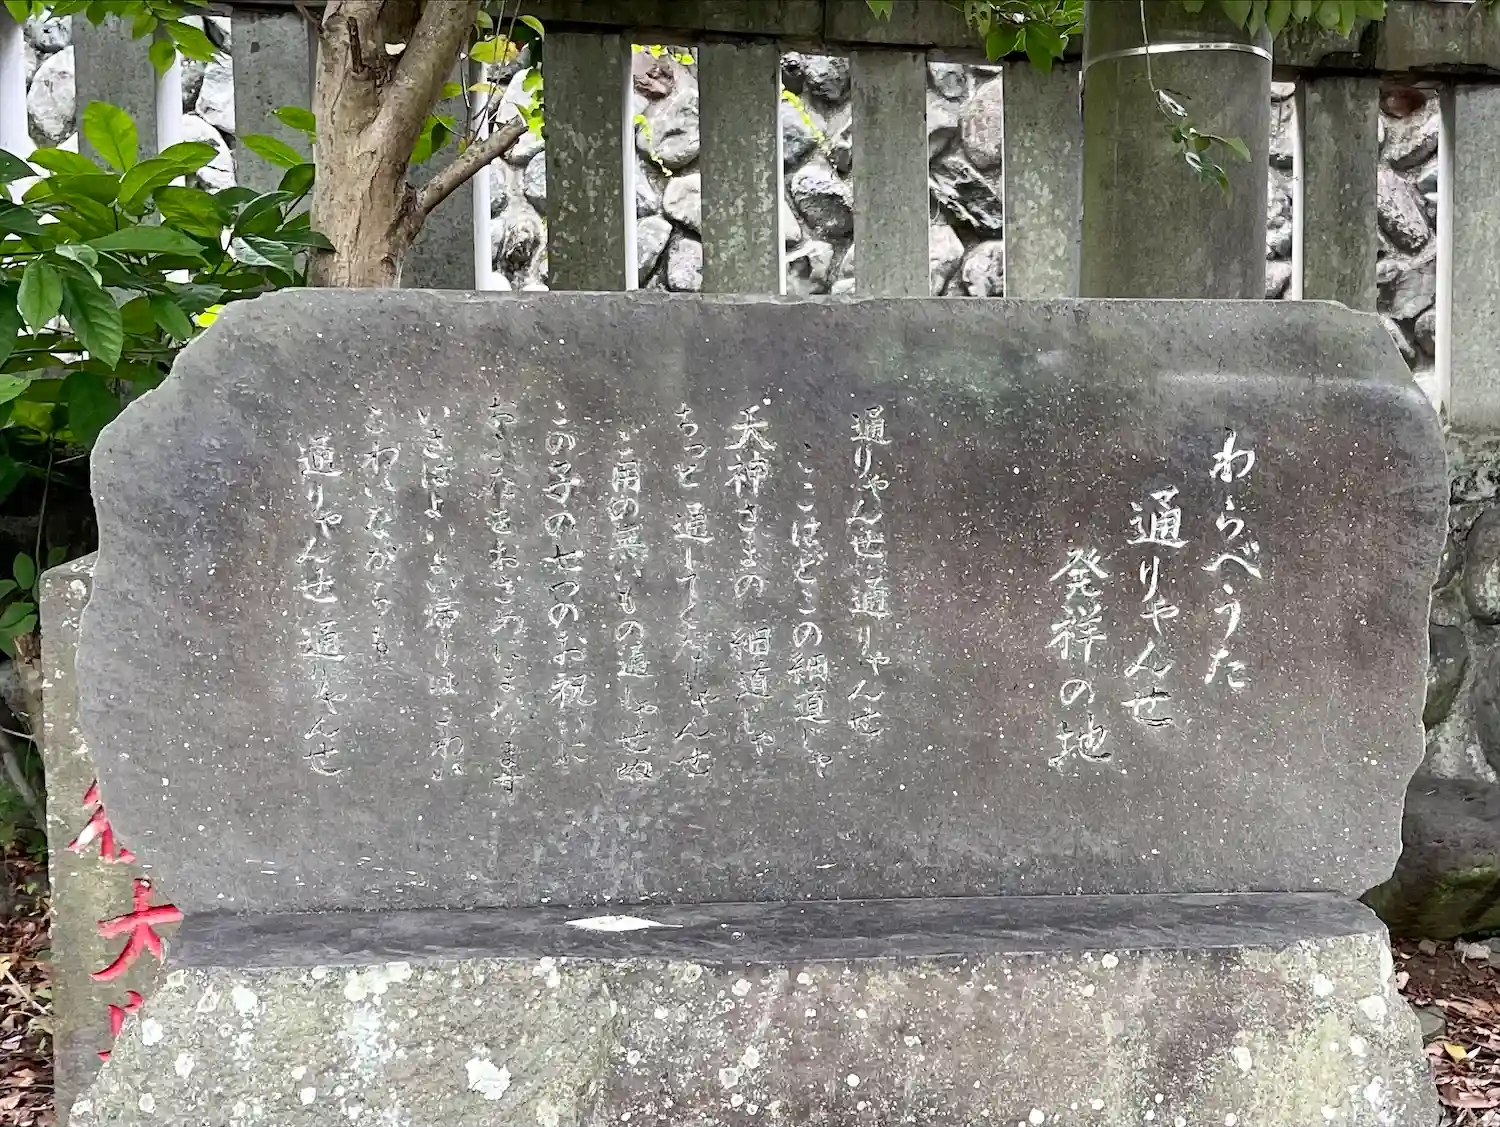 わらべうた
通りゃんせ
発祥の地
通りゃんせ通りゃんせ
ここはどこの細道じゃ
天神さまの 細道じゃ
ちっと 通してくだしゃんせ
ご用の無いもの通しゃせぬ
この子の七つのお祝いに
おふだをおさめにまいります
いきはよいよい帰りはこわい
こわいながらも
通りゃんせ 通りゃんせ
大